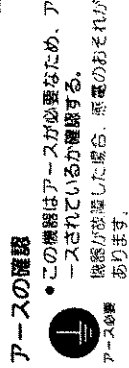 アースの確認
●この機器はアースが必要なため、ア
ースされているか確認する。
機器が故障した場合、感電のおそれが
あります。
アース必要